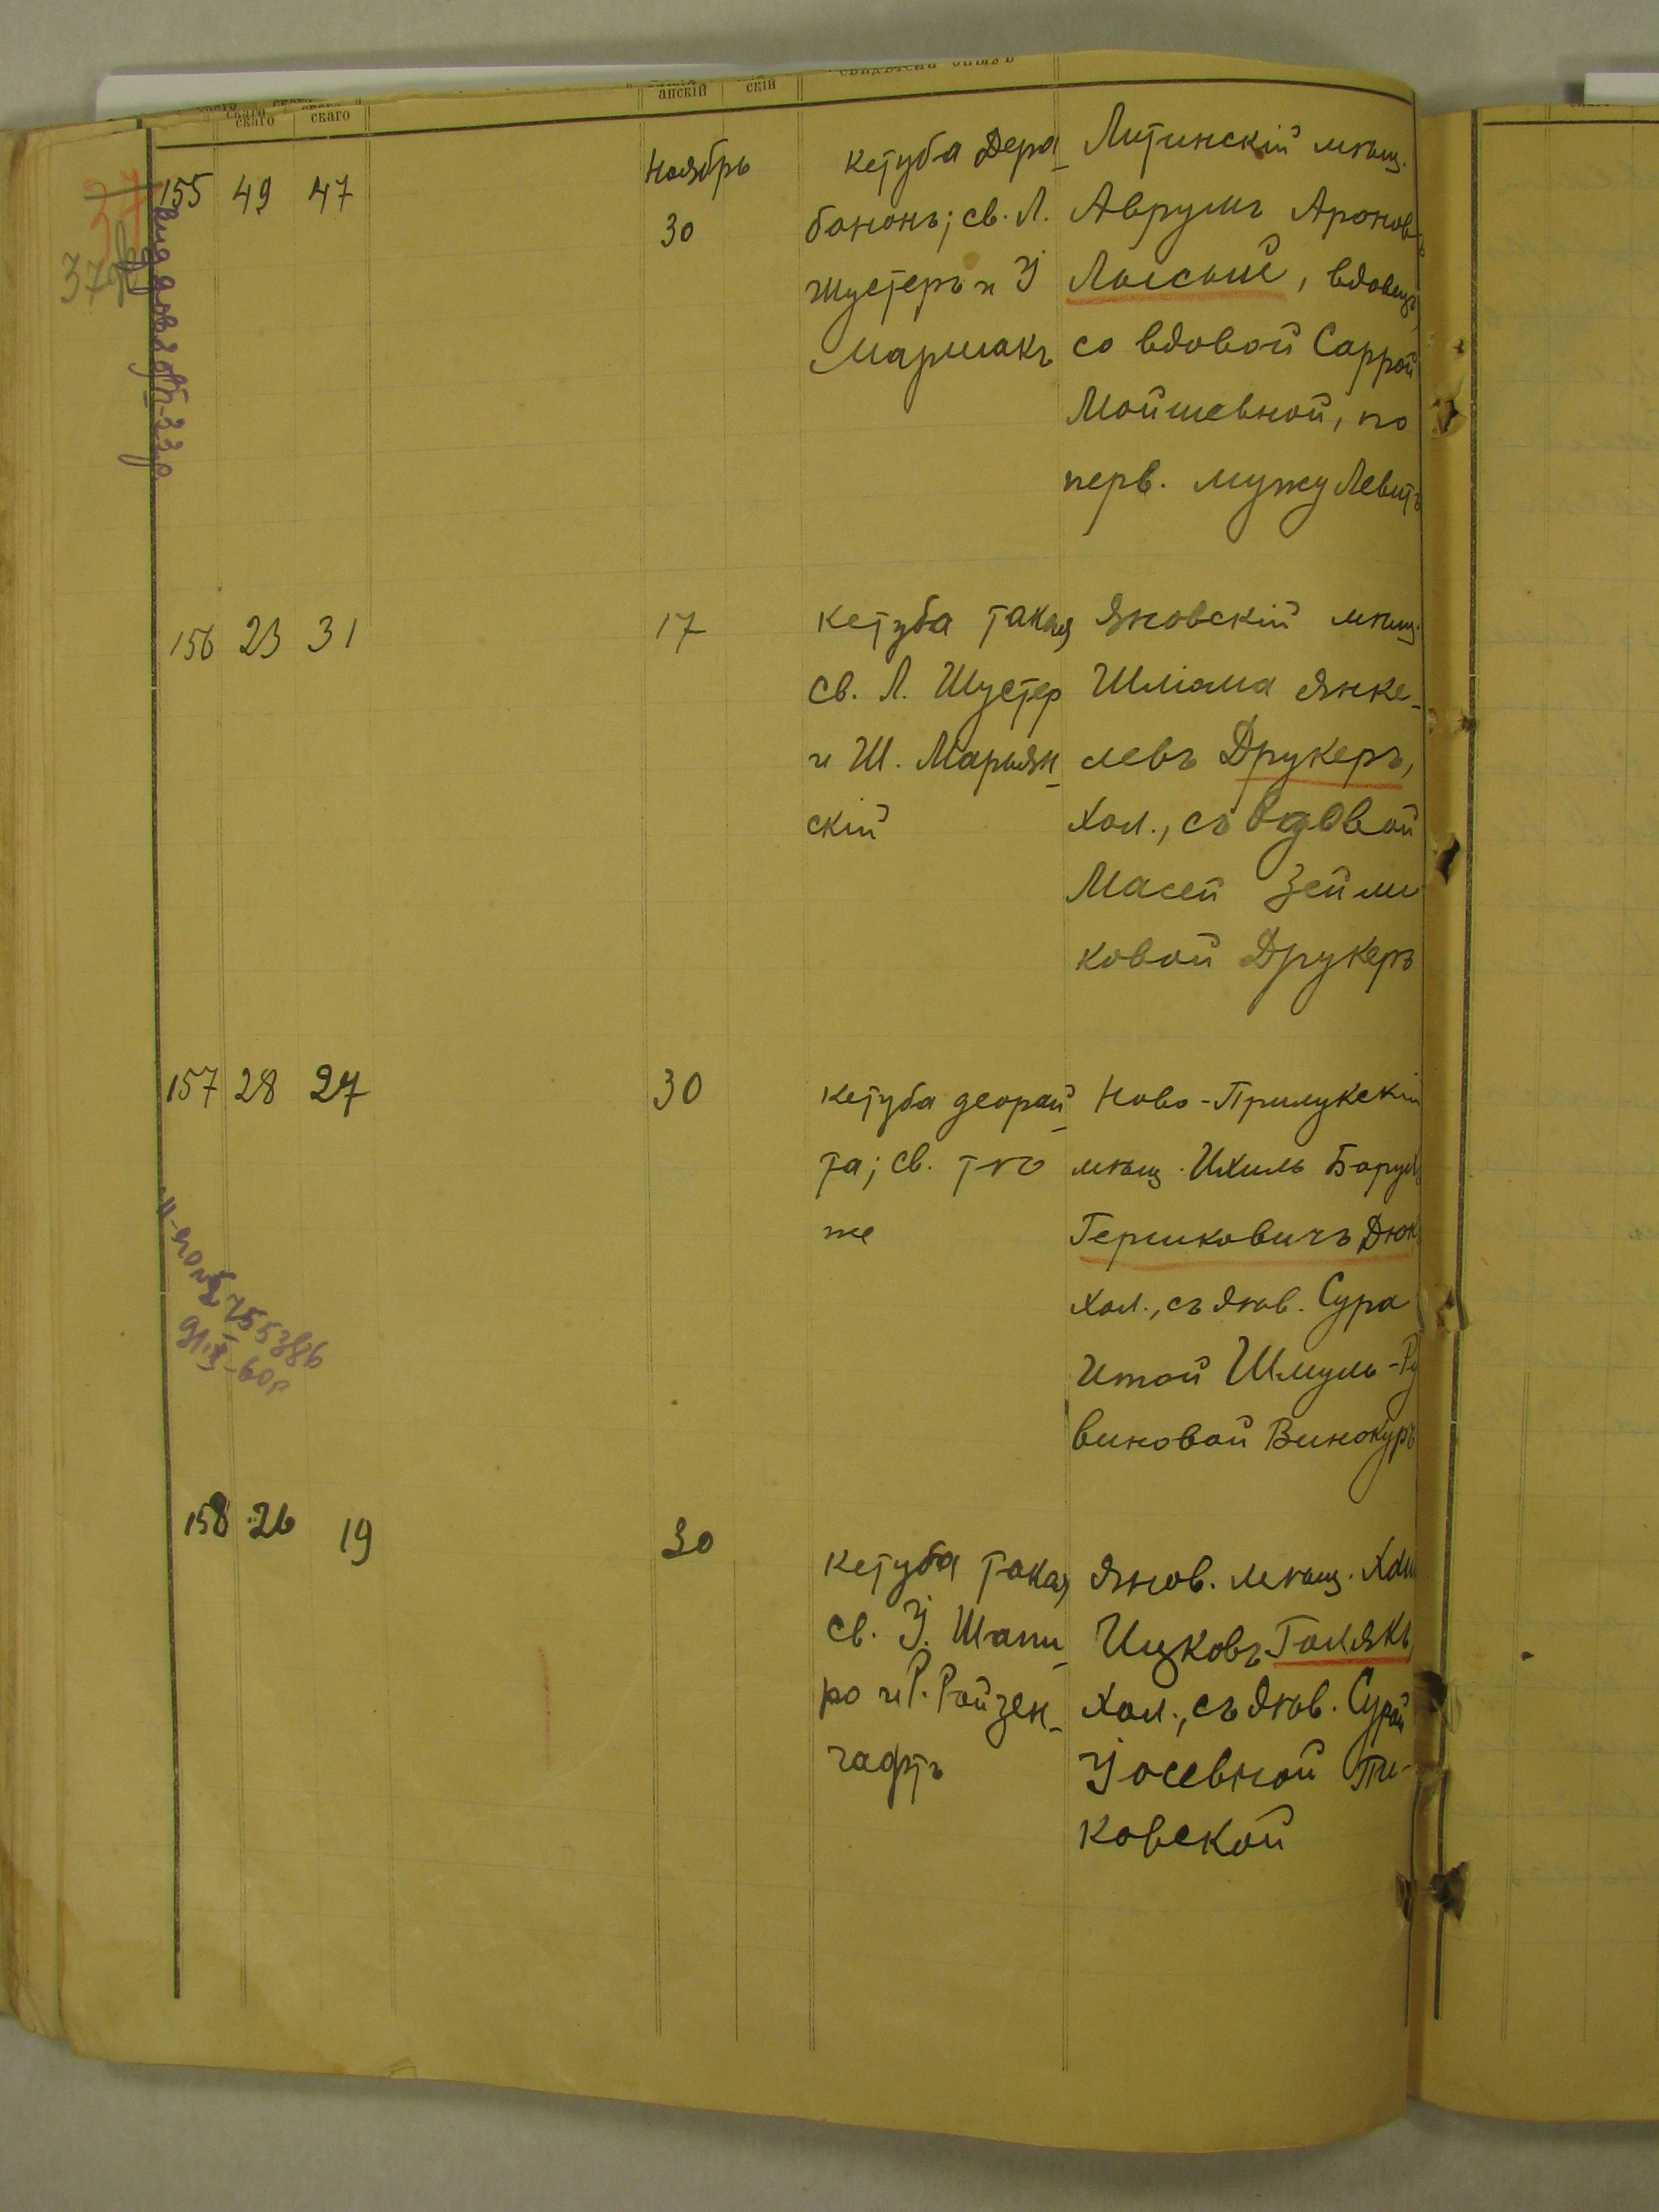 скаго скаго анскій скій
155 49 47 Ноябрь 30
Кетуба Дера-
бононъ; св. Л.
Шустеръ и І
Маршакъ
Литинскій мѣщ.
Аврумъ Ароновъ
Лысый, вдовецъ,
со вдовой Саррой
Мойшевной, по
перв. мужу Левитъ
156 23 31 17
Кетуба такая
св. Л. Шустер
и Ш. Марьян-
скій
Яновскій мѣщ.
Шліома Янке-
левъ Друкеръ,
хол., съ вдовой
Масей Зейли
ковой Друкеръ
157 28 27 30
Кетуба деорай-
та; св. тѣ
же
Ново-Прилукскій
мѣщ. Ихиль Борух
Гершковичъ Дюк
хол., съ дѣв. Сура
Итой Шмуль-Ру
виновой Винокуръ
158 26 19 30
Кетуба такая,
св. І. Шапи-
ро и Р. Ройзен-
гафтъ
Янов. мѣщ. Хаи
Ицковъ Голякъ,
хол., съ дѣв. Сурой
Іосевной Пи-
ковской
37
755386